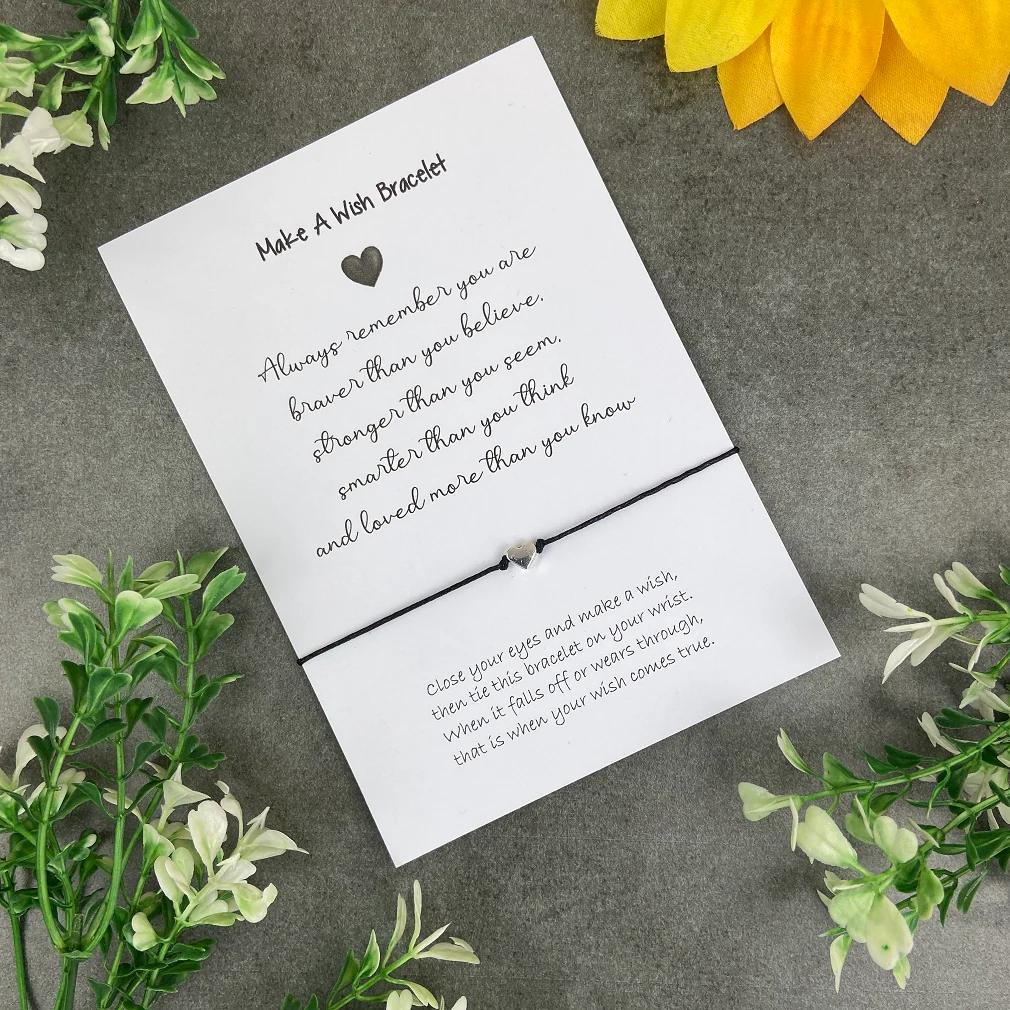 Make A Wish Bracelet
Always remember you are
braver than you believe,
stronger than you seem,
smarter than you think
and loved more than you know
Close your eyes and make a wish,
then tie this bracelet on your wrist.
When it falls off or wears through,
that is when your wish comes true.